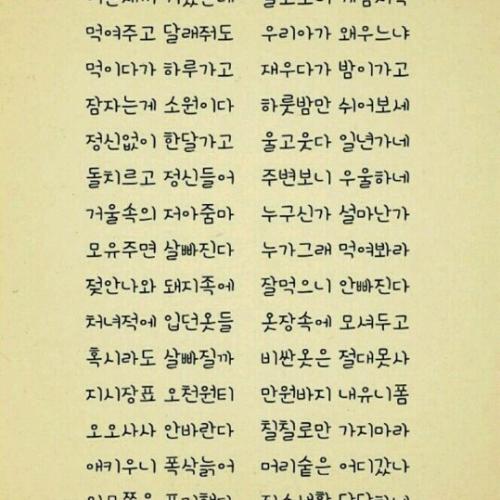 먹여주고 달래줘도 우리아가 왜우느냐
먹이다가 하루가고 재우다가 밤이가고
잠자는게 소원이다 하룻밤만 쉬어보세
정신없이 한달가고 울고웃다 일년가네
돌치르고 정신들어 주변보니 우울하네
거울속의 저아줌마 누구신가 설마난가
모유주면 살빠진다 누가그래 먹여봐라
젖안나와 돼지족에 잘먹으니 안빠진다
처녀적에 입던옷들 옷장속에 모셔두고
혹시라도 살빠질까 비싼옷은 절대못사
지시장표 오천원티 만원바지 내유니폼
오오사사 안바란다 칠칠로만 가지마라
애키우니 폭삭늙어 머리숱은 어디갔나